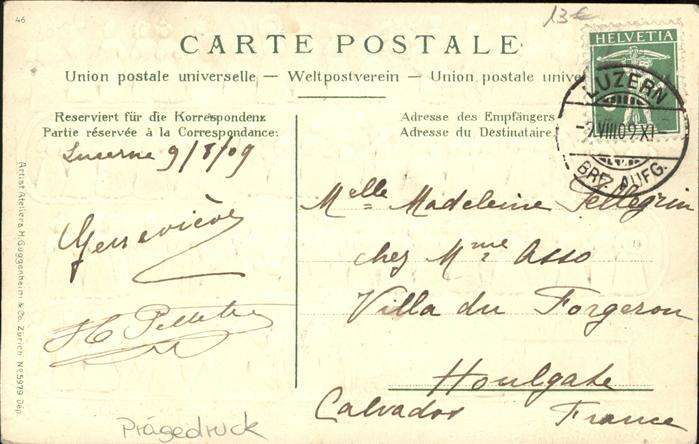 46
13€
CARTE POSTALE
Union postale universelle — Weltpostverein — Union postale unive
HELVETIA
LUZERN
-9.VIII.09.XI
BRF. AUFG.
Reserviert für die Korrespondenz
Partie réservée à la Correspondance:
Adresse des Empfängers
Adresse du Destinataire
Lucerne 9/8/09
Geneviève
H Pelletier
Melle Madeleine Pellegrin
chez Mme Asso
Villa du Forgeron
Houlgate
Calvados France
Artist. Ateliers H. Guggenheim & Co. Zürich No 5979 Dép.
Prägedruck